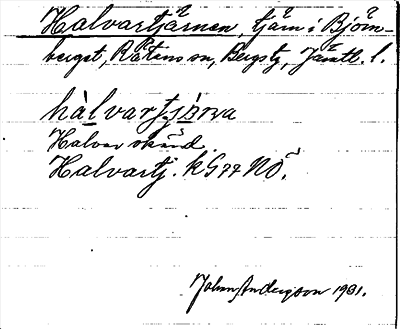 Halvartjärnen, tjärn i Björn-
berget, Rätans sn, Bergs tg, Jämtl. l.
hàlvartjà̤rna
Halvar okänd.
Halvartj. kG 77 NÖ.
John Andersson 1931.